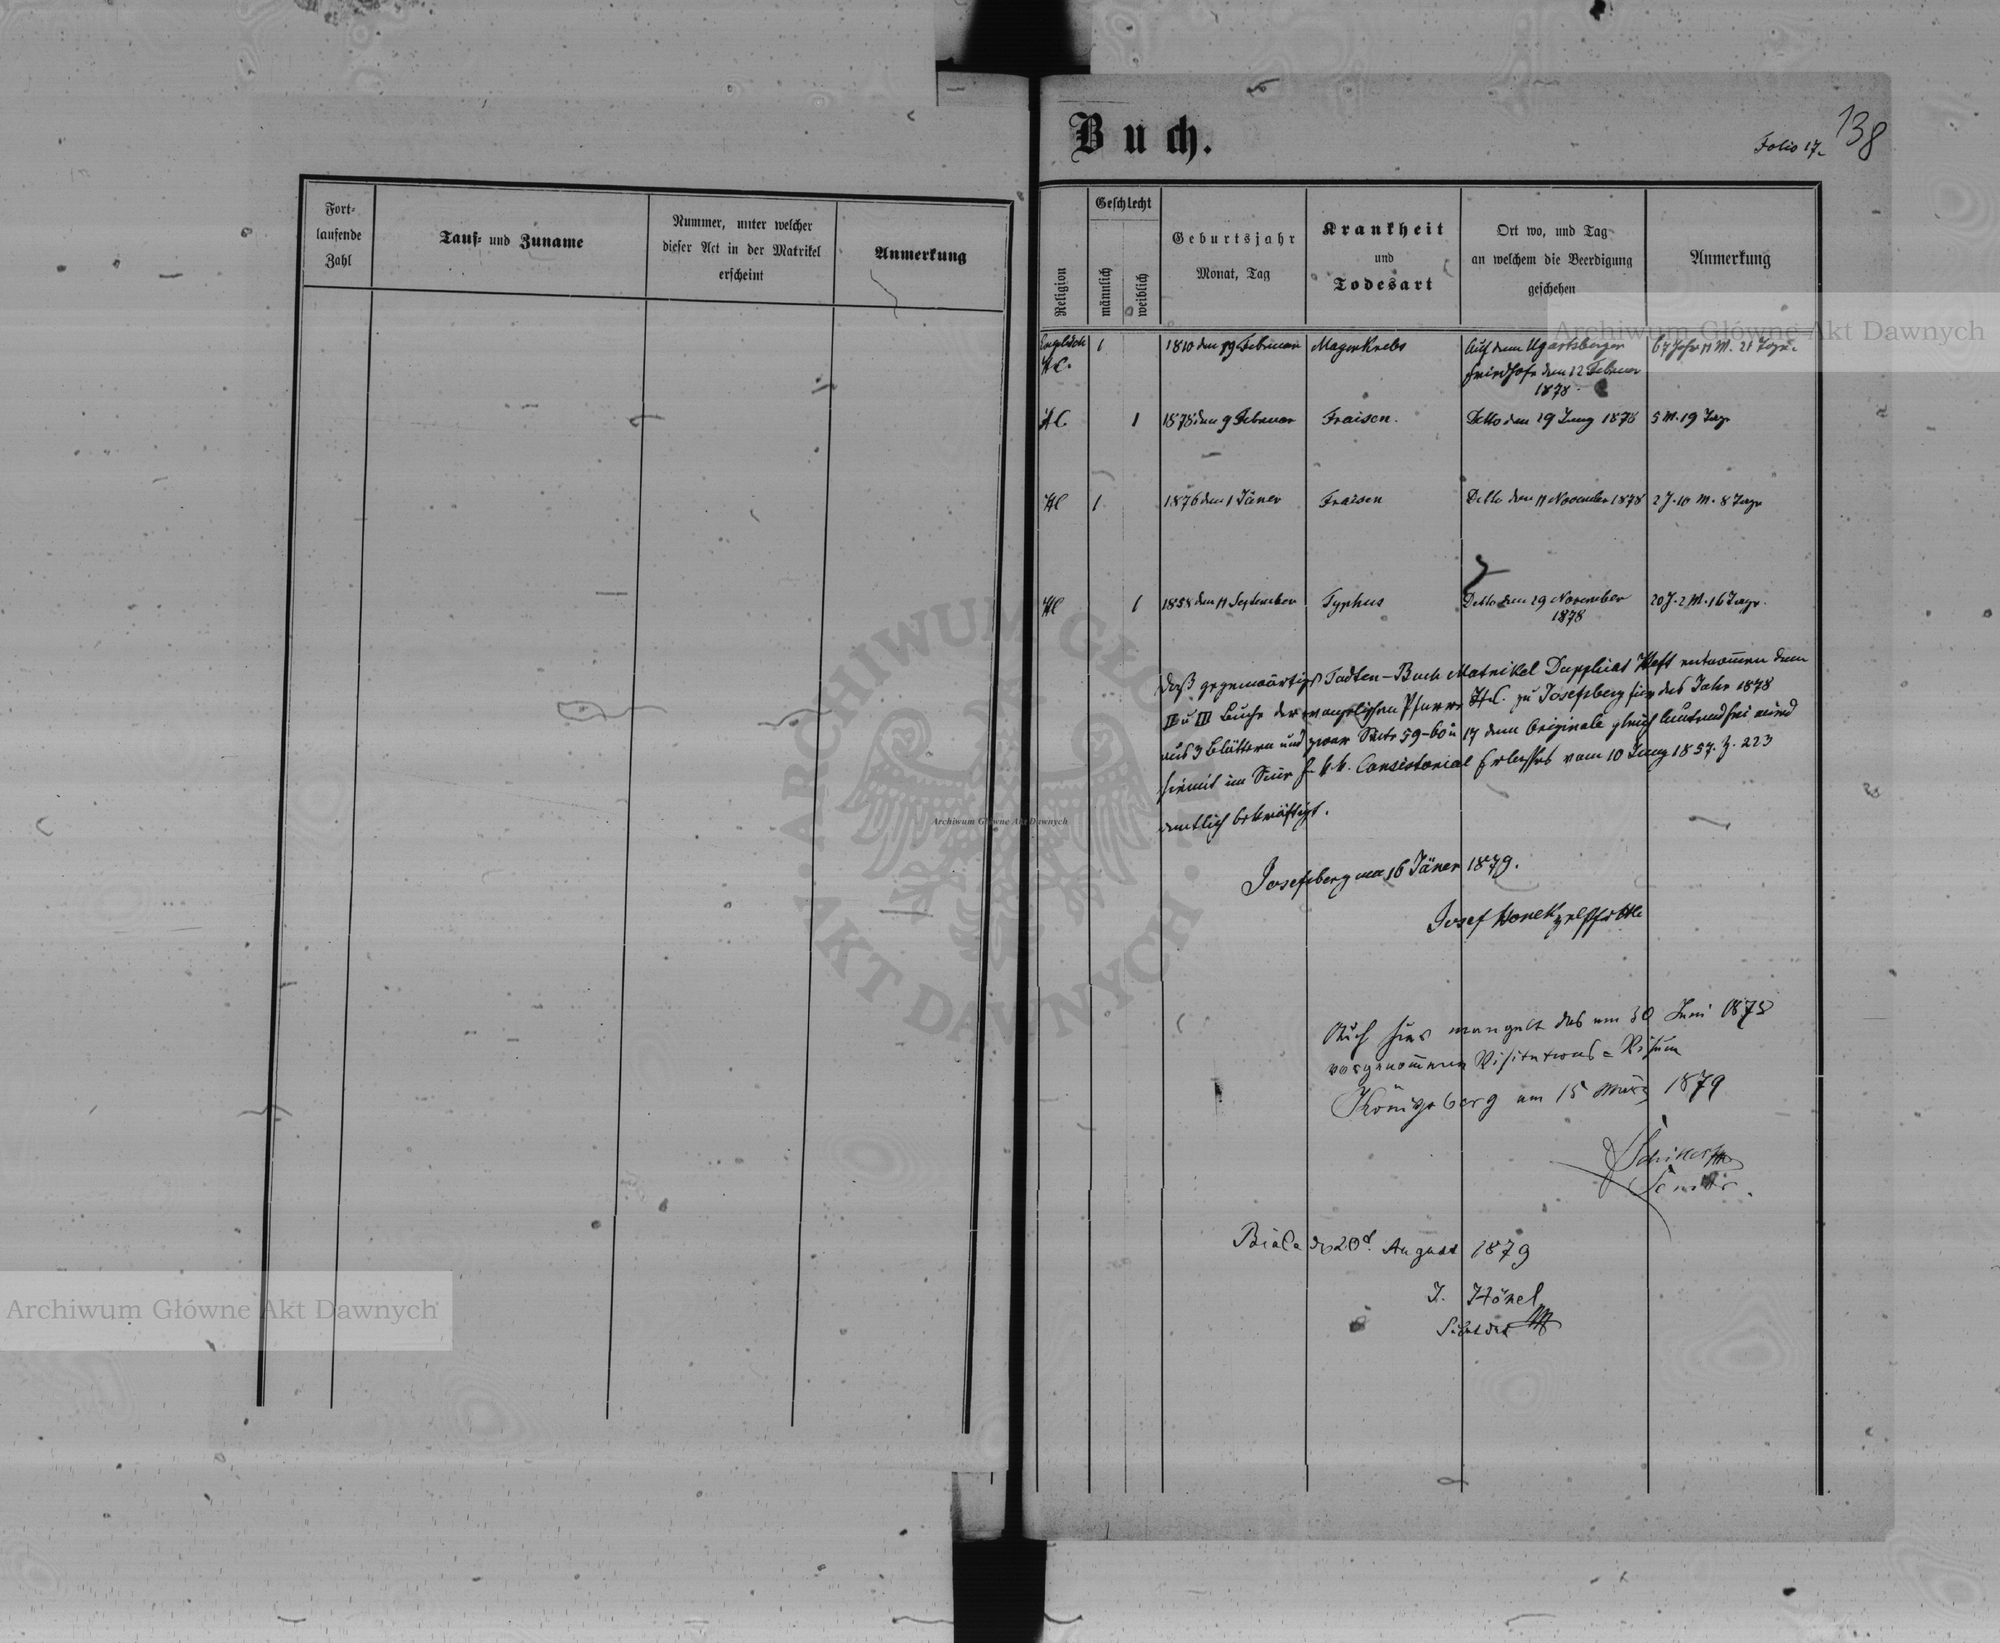 Fort-
laufende
Zahl
Tauf- und Zuname
Nummer, unter welcher
dieser Act in der Matrikel
erscheint
Anmerkung
Buch.
Folio 17
138
Religion
Geschlecht
männlich
weiblich
Geburtsjahr
Monat, Tag
Krankheit
und
Todesart
Ort wo, und Tag
an welchem die Beerdigung
geschehen
Anmerkung
H.C.
1
1810 den 19 Februar
Magenkrebs
Auf dem Ugartsberger
Friedhofe den 12 Februar
1878.
67 Jahr 11 M. 21 Tage.
HC
1
1878 den 9 Februar
Fraisen.
Detto den 29 Juny 1878
5 M. 19 Tage
HC
1
1876 den 1 Jäner
Fraisen
Detto den 11 November 1878
2 J. 10 M. 8 Tage
HC
1
1858 den 11 September
Typhus
Detto den 29 November
1878
20 J. 2 M. 16 Tage.
Daß gegenwärtiges Todten-Buch Matrikel Duplicat Heft entnommen dem
II u III Buche der evangelischen Pfarre H.C. zu Josefsberg für das Jahr 1878
aus 3 Blättern und zwar Seite 59-60 u 17 dem Originale gleichlautend sei wird
hiemit im Sinne k.k. Consistorial Erlasses vom 10 Juny 1857. Z. 223
amtlich bekräftigt.
Josefsberg am 16 Jäner 1879.
Josef
Auch hier mangelt das am 30 Juni 1878
vorgenommene Visitations-Visum
Königsberg am 15 März 1879
Senior.
Biala d. 20. August 1879
J. Hönel
Archiwum Główne Akt Dawnych
Archiwum Główne Akt Dawnych
Archiwum Główne Akt Dawnych
ARCHIWUM GŁÓWNE AKT DAWNYCH